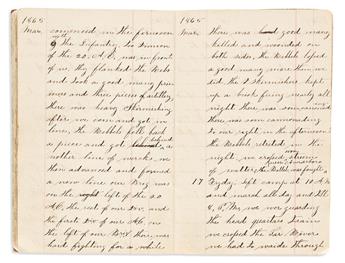 1865
Mar. comenced in the forenoon
the Infantry, 1st Division
of the 20, A.C, was in front
of us, they flanked the Rebs
and took a good many pris
iners and three pieces of artillery
there was heavy Skirmishing
after we cam and got in
line, the Rebbels folk back
a pieces and got behind
another line of works, we
than advanced and formed
a new line our Brig was
on the right left of the 20
AC, the rest of our Div and
the first Div of our AC, on
the left of our Brig there was
hard fighting for a while
1865
Mar. there was good many
killed and wounded on
both sides the Rebbels lossed
a good many more than we
did the Skirmishers kept
up a brisk fireing nearly all
night there was som
there was som cannonading
to our right in the afternoon
the Rebbels retreted in the
night, we crossed
of watter, the Rebbels
17 Fryday left camp at 10 A.M
and march all day and till
8, P.M we wer guarding
the head quarters train
we crossed the
we had to waide through